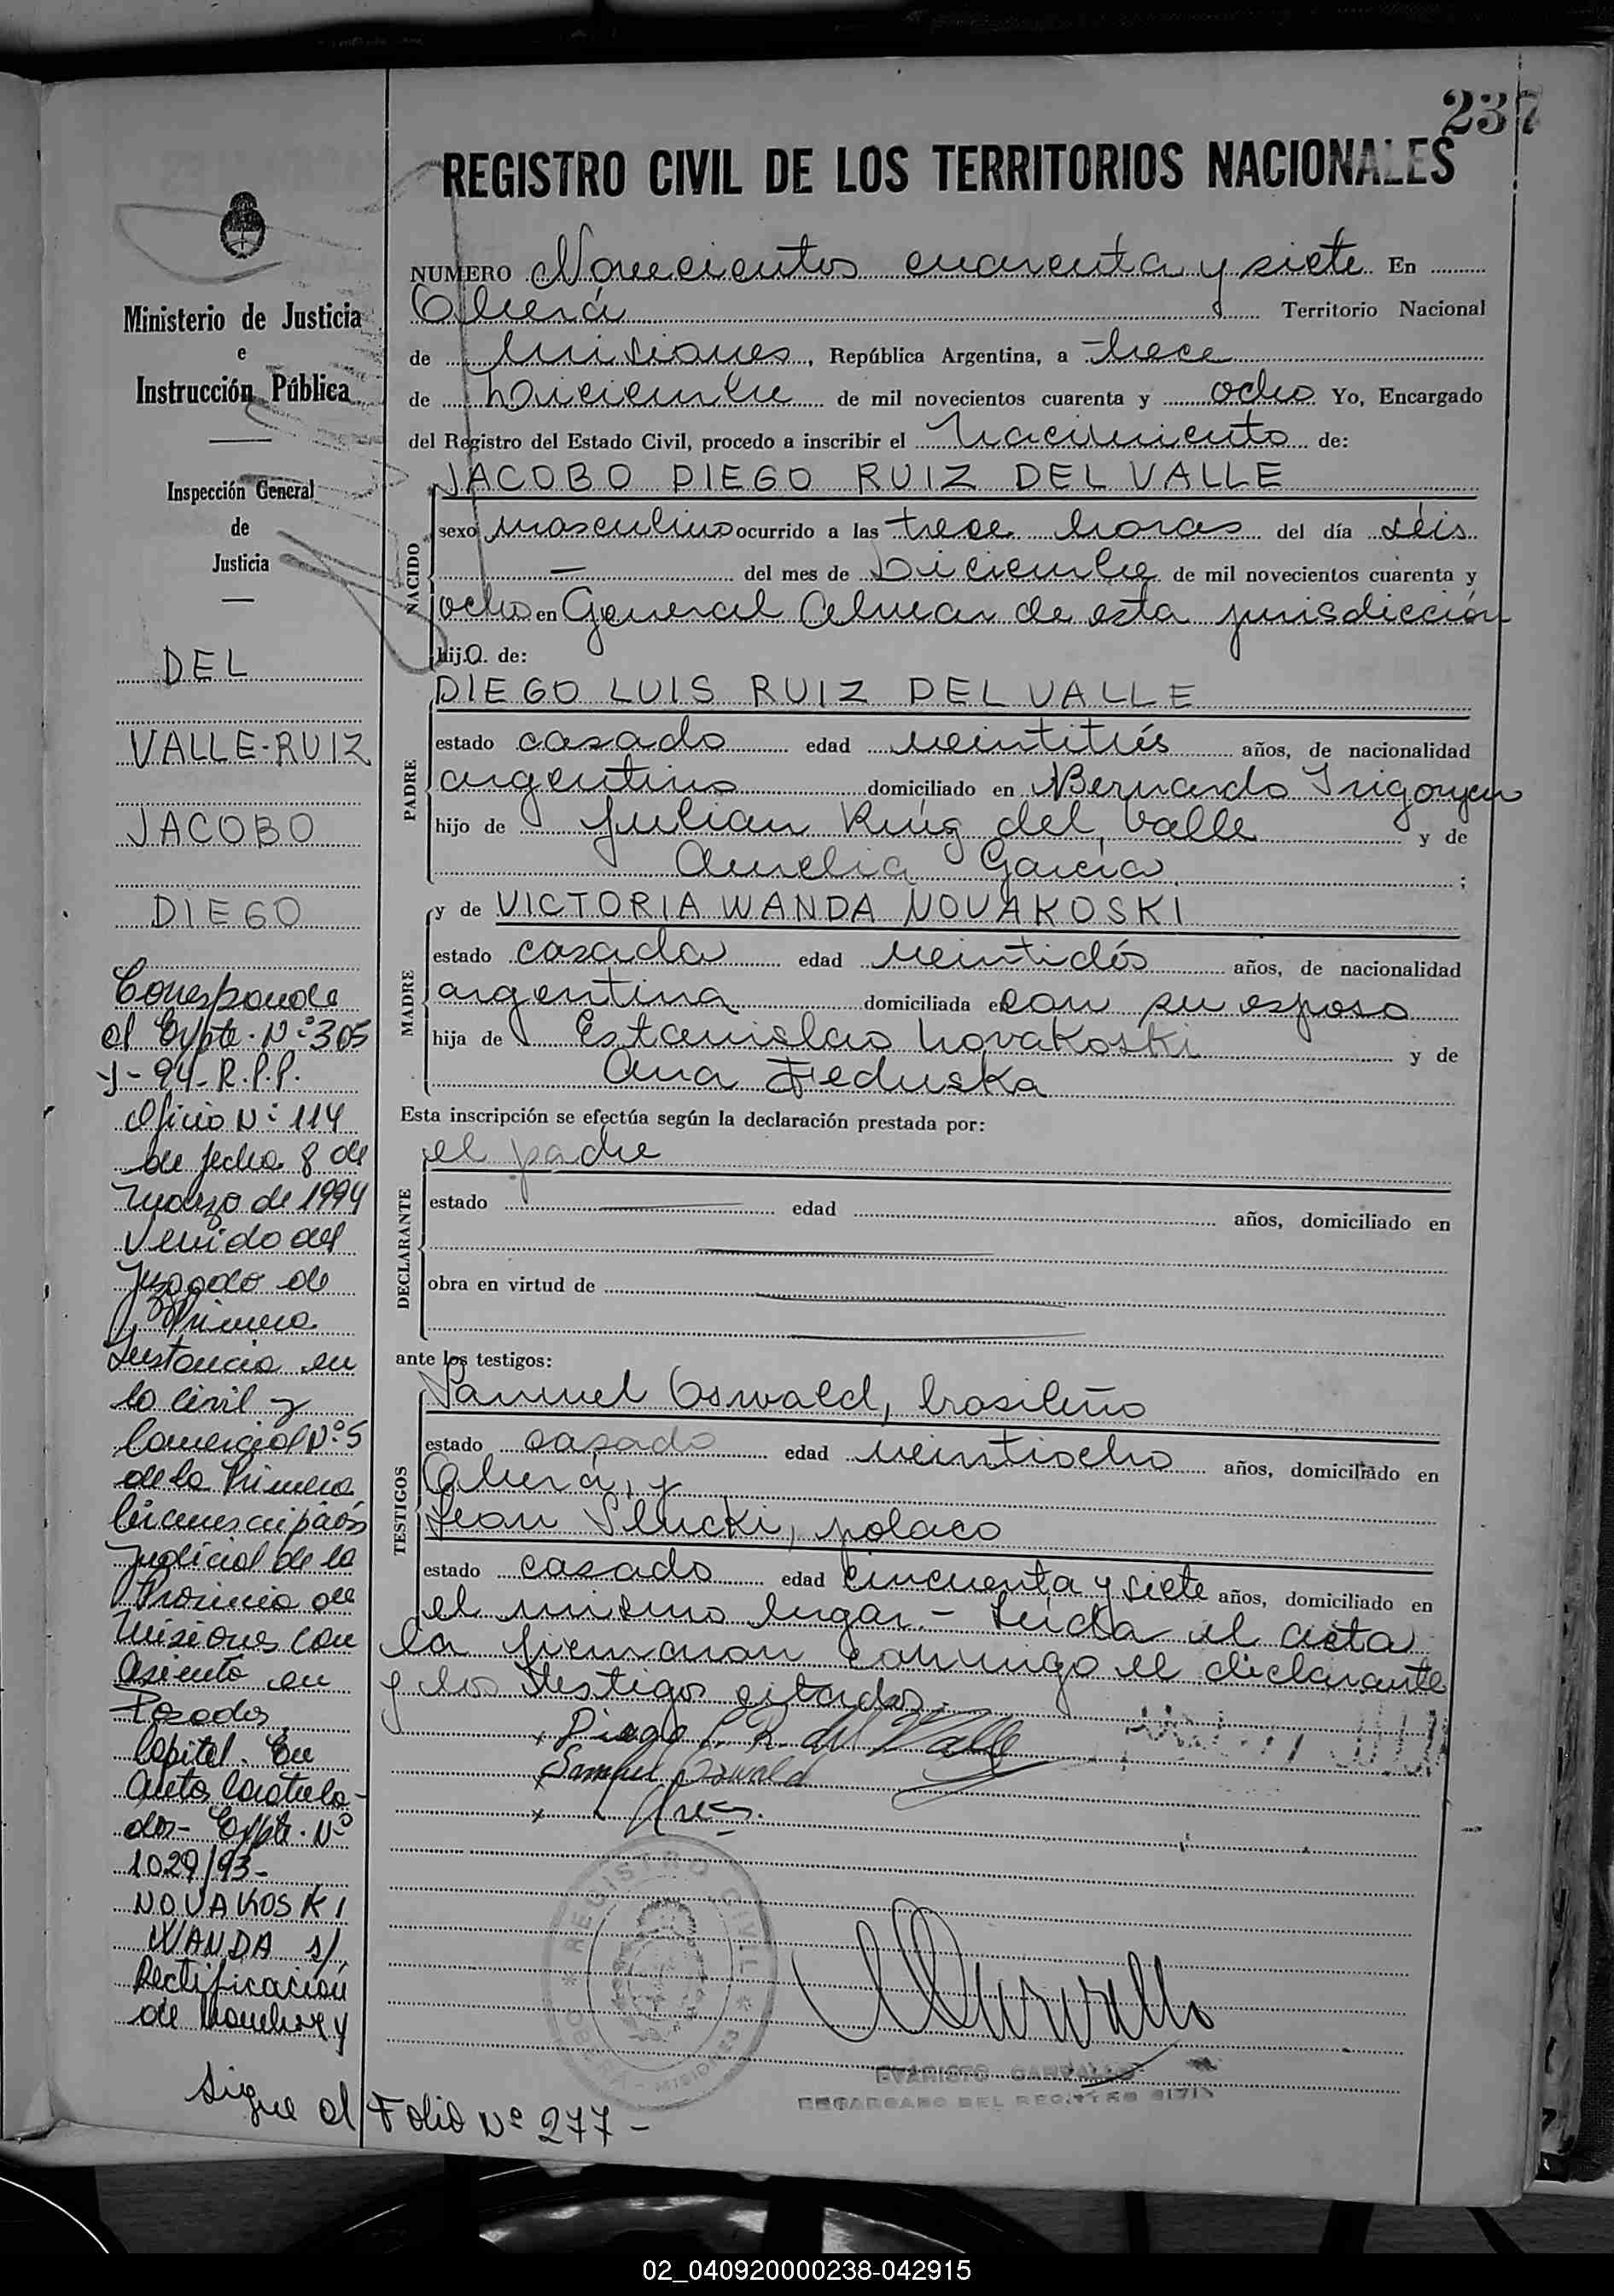 237
REGISTRO CIVIL DE LOS TERRITORIOS NACIONALES
Ministerio de Justicia
e
Instrucción Pública
Inspección General
de
Justicia
DEL
VALLE-RUIZ
JACOBO
DIEGO
Corresponde
al Expte. Nº 305
y-94-R.P.P.
Oficio Nº 114
de fecha 8 de
marzo de 1994
venido del
Juzgado de
Primera
Instancia en
lo Civil y
Comercial Nº 5
de la Primera
Circunscripción
Judicial de la
Provincia de
Misiones con
asiento en
Posadas,
Capital. En
autos caratula-
dos- Expte. Nº
1029/93-
NOVAKOSKI
WANDA s/
Rectificación
de Nombre y
Sigue al Folio Nº 277-
NUMERO Novecientos cuarenta y siete En
Oberá Territorio Nacional
de Misiones, República Argentina, a trece
de Diciembre de mil novecientos cuarenta y ocho Yo, Encargado
del Registro del Estado Civil, procedo a inscribir el Nacimiento de:
JACOBO DIEGO RUIZ DEL VALLE
NACIDO
sexo masculino ocurrido a las trece horas del día séis
— del mes de Diciembre de mil novecientos cuarenta y
ocho en General Alvear de esta jurisdicción
hijo de:
DIEGO LUIS RUIZ DEL VALLE
PADRE
estado casado edad veintitrés años, de nacionalidad
argentino domiciliado en Bernardo Irigoyen
hijo de Julian Ruíz del Valle y de
Aurelia García ;
y de VICTORIA WANDA NOVAKOSKI
MADRE
estado casada edad veintidós años, de nacionalidad
argentina domiciliada en con su esposo
hija de Estanislao Novakoski y de
Ana Feduska
Esta inscripción se efectúa según la declaración prestada por:
el padre
DECLARANTE
estado edad años, domiciliado en
obra en virtud de
ante los testigos:
TESTIGOS
Samuel Oswald, brasileño
estado casado edad veintiocho años, domiciliado en
Oberá, y
Leon Slucki, polaco
estado casado edad cincuenta y siete años, domiciliado en
el mismo lugar.- Leída el acta
la firmaron conmigo el declarante
y los testigos citados.-
Diego L. R. del Valle
Samuel Oswald
REGISTRO CIVIL
OBERÁ - MISIONES
EVARISTO CARVALLO
ENCARGADO DEL REGISTRO CIVIL
02_040920000238-042915